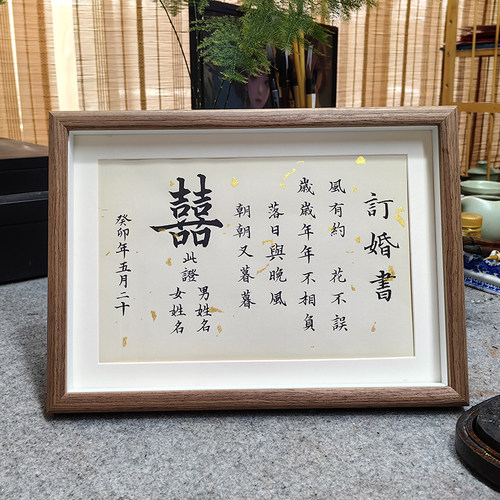 訂婚書
風有約 花不誤
歲歲年年不相負
落日與晚風
朝朝又暮暮
囍
此證
男姓名
女姓名
癸卯年五月二十